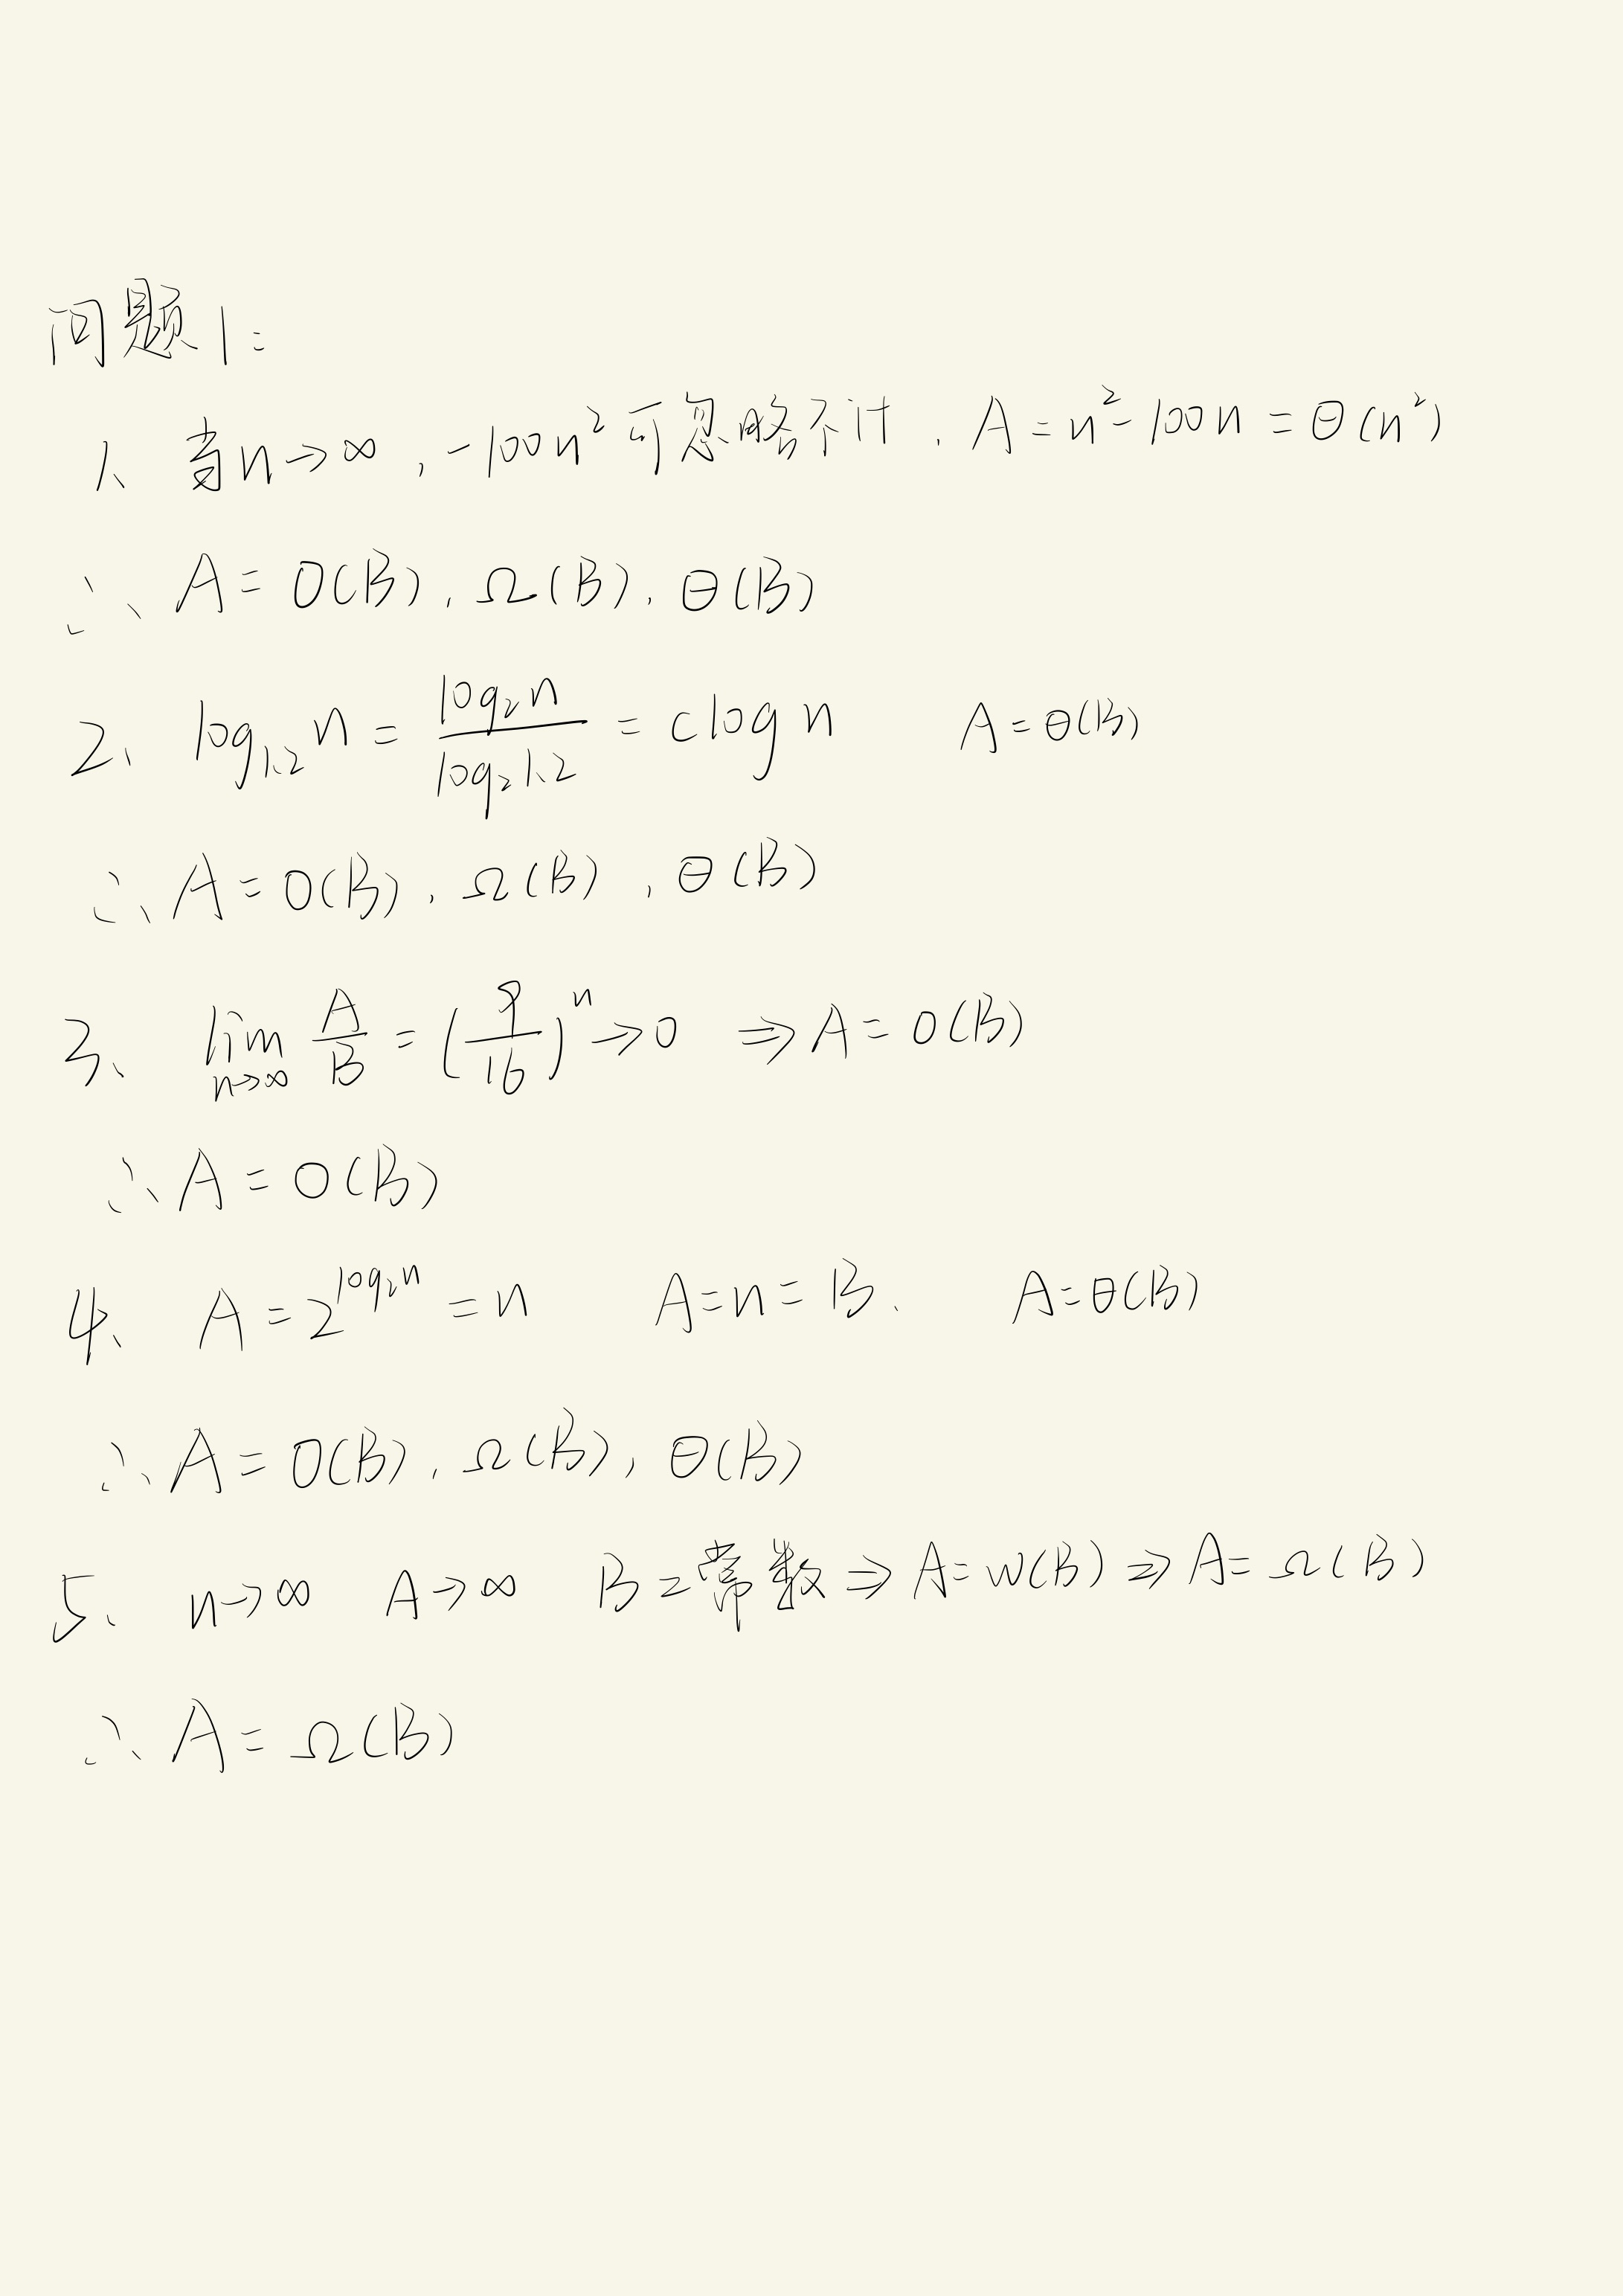 问题1:
1、当n→∞，-100n²可忽略不计，A=n²-100n=θ(n²)
∴ A=O(B)，Ω(B)，θ(B)
2、log₁.₂n = log₂n / log₂1.2 = clog n A=θ(B)
∴ A=O(B)，Ω(B)，θ(B)
3、lim n→∞ A/B = (9/16)ⁿ→0 ⇒A=o(B)
∴ A=O(B)
4、A=2^log₂n =n A=n=B、 A=θ(B)
∴ A=O(B)，Ω(B)，θ(B)
5、n→∞ A→∞ B=常数⇒A=w(B)⇒A=Ω(B)
∴ A=Ω(B)